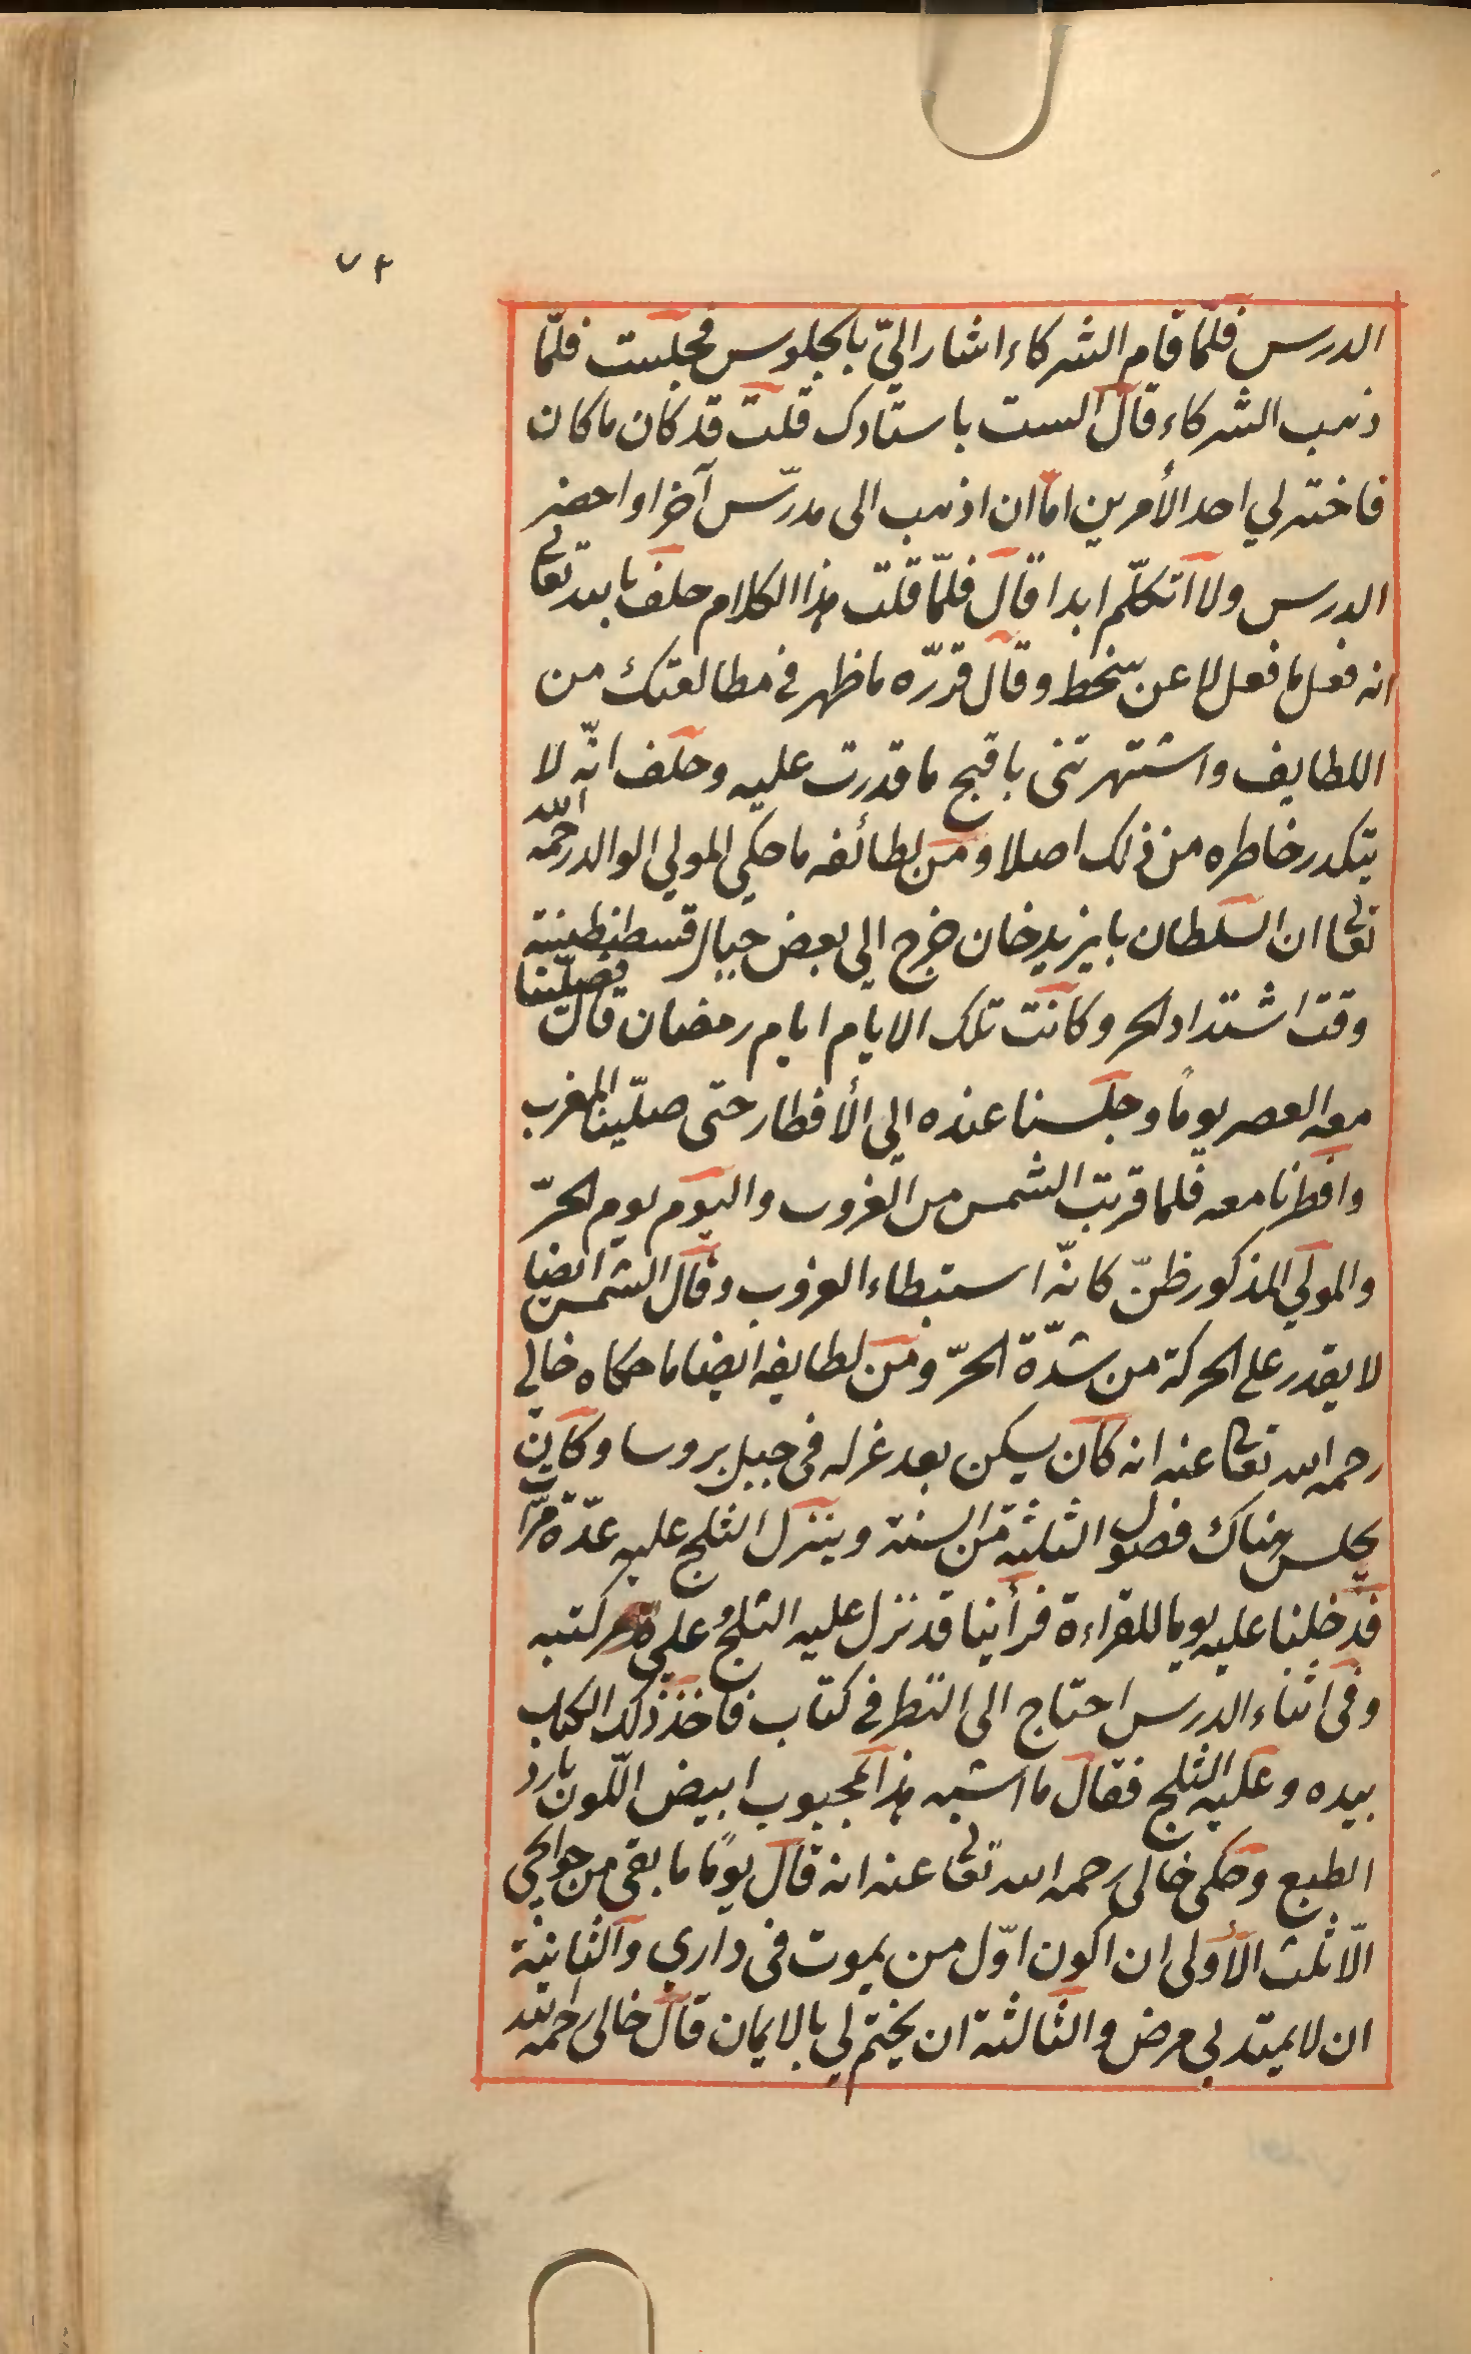 ٧٢
الدرس فلمّا قام الشركاء اشار اليّ بالجلوس فجلست فلمّا
ذهب الشركاء قال الست باستادك قلت قد كان ما كان
فاختر لي احد الأمرين امّا ان اذهب الى مدرّس آخر او احضر
الدرس ولا اتكلّم ابدا قال فلمّا قلت هذا الكلام حلف بالله تعالى
انه فعل ما فعل لا عن سخط وقال قدّره ما ظهر في مطالعتك من
اللطايف واشتهرتنى باقبح ما قدرت عليه وحلف انّه لا
يتكدر خاطره من ذلك اصلا ومن لطائفه ما حكى المولى الوالد رحمه الله
تعالى ان السلطان بايزيد خان خرج الى بعض جبال قسطنطينية
وقت اشتداد الحر وكانت تلك الايام ايام رمضان قال فصلّينا
معه العصر يوماً وجلسنا عنده الى الأفطار حتى صلّينا المغرب
وافطرنا معه فلما قربت الشمس من الغروب واليوم يوم الحرّ
والمولى المذكور ظنّ كانّه استبطاء الغروب وقال الشمس ايضا
لا يقدر على الحركة من شدّة الحرّ ومن لطايفه ايضا ما حكاه خالي
رحمه الله تعالى عنه انه كان يسكن بعد عزله في جبل بروسا وكان
يجلس هناك فصول الثلثة من السنة وينزل الثلج عليه عدّة مرّات
فدخلنا عليه يوما للقراءة فرأينا قد نزل عليه الثلج على كتبه
وفي اثناء الدرس احتاج الى النظر في كتاب فاخذ ذلك الكتاب
بيده وعليه الثلج فقال ما اشبه هذا المحبوب ابيض اللّون بارد
الطبع وحكى خالى رحمه الله تعالى عنه انه قال يومًا ما بقى من حوائجي
الّا ثلث الأولى ان اكون اوّل من يموت في داري والثانية
ان لا يمتد بى مرض والثالثة ان يختم لي بالايمان قال خالى رحمه الله